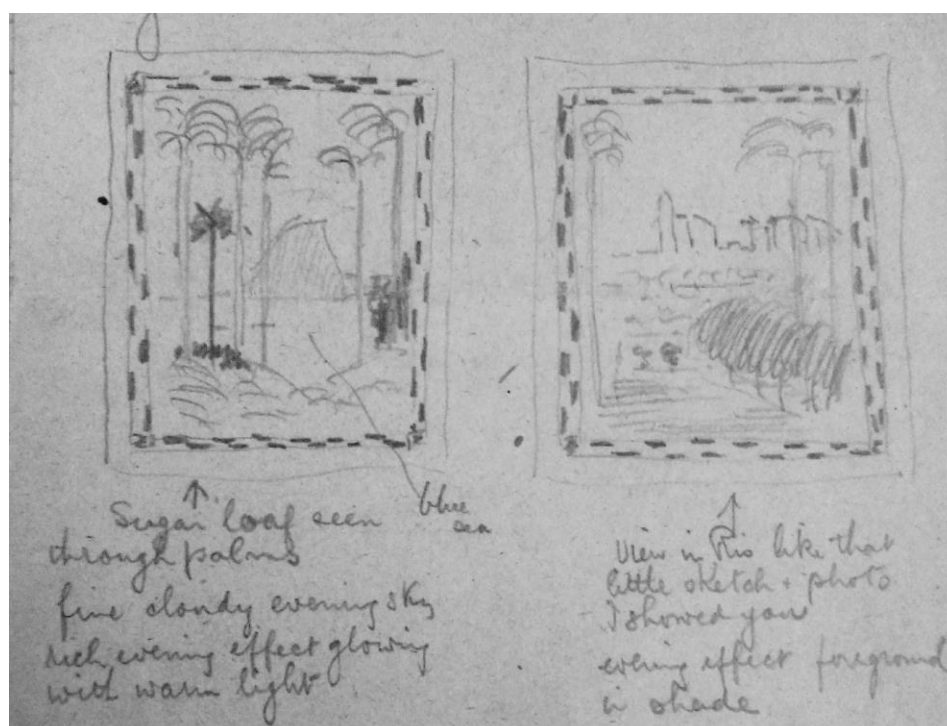 Sugar loaf seen
through palms
fine cloudy evening sky
rich evening effect glowing
with warm light
blue
sea
View in Rio like that
little sketch + photo
I showed you
evening effect foreground
in shade